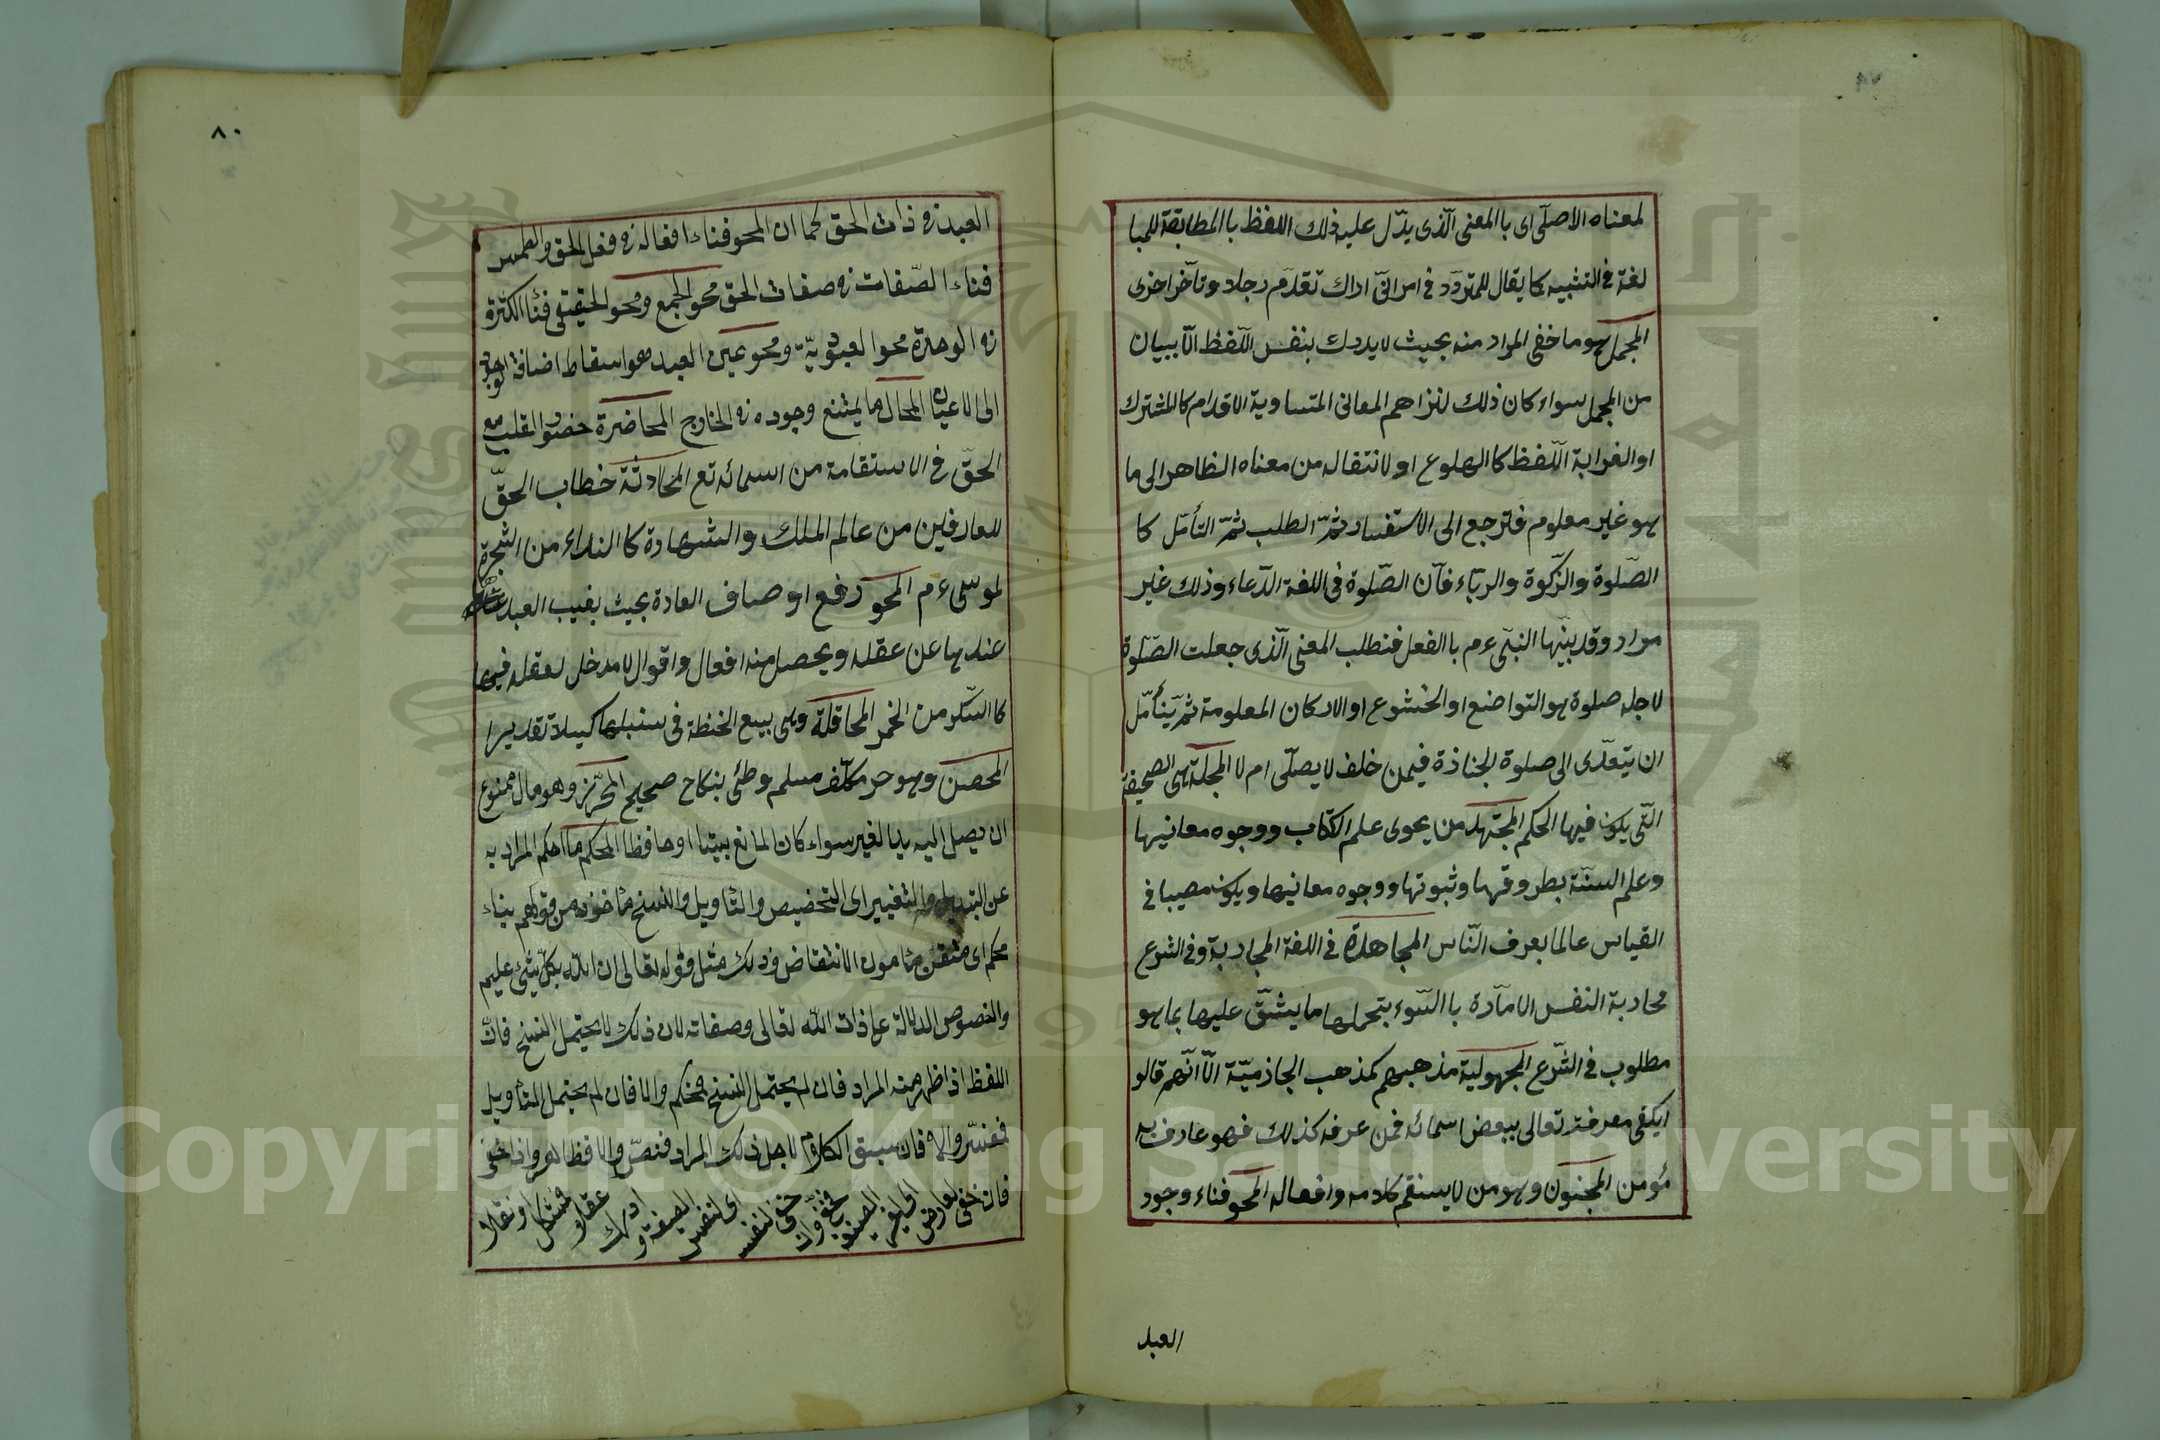 لمعناه الاصلى اى بالمعنى الذى يدل عليه ذلك اللفظ بالمطابقة للمبا
لغة فى التشبيه كما يقال للمتردد فى امر انى اراك تقدم رجلا وتأخر اخرى
المجمل هو ما خفى المراد منه بحيث لا يدرك بنفس اللفظ الا ببيان
من المجمل سواء كان ذلك لتزاحم المعانى المتساوية الاقدام كالمشترك
او لغرابة اللفظ كالهلوع او لانتقاله من معناه الظاهر الى ما
هو غير معلوم فترجع الى الاستفسار ثم الطلب ثم التأمل كا
الصلوة والزكوة والرباء فان الصلوة فى اللغة الدعاء وذلك غير
مراد وقد بينها النبى عم بالفعل فنطلب المعنى الذى جعلت الصلوة
لاجله صلوة هو التواضع او الخشوع او الاركان المعلومة ثم يتأمل
ان يتعدى الى صلوة الجنازة فيمن خلف لا يصلى ام لا المجلة هى الصحيفة
التى يكون فيها الحكم المجتهد من يحوى علم الكتاب ووجوه معانيها
وعلم السنة بطروقها وثبوتها ووجوه معانيها ويكون مصيبا فى
القياس عالما بعرف الناس المجاهدة فى اللغة المحاربة وفى الشرع
محاربة النفس الامارة بالسوء بتحملها ما يشق عليها بما هو
مطلوب فى الشرع المجهولية مذهبهم كمذهب الجازمية الا انهم قالو
ايكفى معرفته تعالى ببعض اسمائه فمن عرفه كذلك فهو عارف به
مؤمن المجنون وهو من لا يستقم كلامه وافعاله المحو فناء وجود
العبد
٨٠
العبد فى ذات الحق كما ان المحو فناء افعاله فى فعل الحق والطمس
فناء الصفات فى صفات الحق محو الجمع ومحو الحقيقى فناء الكثرة
فى الوحدة محو العبودية ومحو عين العبد هو اسقاط اضافة الوجود
الى الاعيان المحال ما يمتنع وجوده فى الخارج المحاضرة حضور القلب مع
الحق فى الاستقامة من اسمائه تع المحادثة خطاب الحق
للعارفين من عالم الملك والشهادة كالنداء من الشجرة
لموسى عم المحو رفع اوصاف العادة بحيث يغيب العبد
عندها عن عقله ويحصل منه افعال واقوال لا مدخل لعقله فيها
كالسكر من الخمر المحاقلة وهى بيع الحنطة فى سنبلها كيلا تقديرا
المحصن وهو حر مكلف مسلم وطئ بنكاح صحيح المحرز وهو مال ممنوع
ان يصل اليه يد الغير سواء كان المانع بيتا او حافظا المحكم ما احكم المراد به
عن التبديل والتغيير اى التخصيص والتأويل والنسخ مأخوذ من قولهم بناء
محكم اى متقن مأمون الانتقاض وذلك مثل قوله تعالى ان الله بكل شئ عليم
والنصوص الدالة على ذات الله تعالى وصفاته لان ذلك لا يحتمل النسخ فان
اللفظ اذا ظهر منه المراد فان لم يحتمل النسخ فمحكم والا فان لم يحتمل التأويل
فمفسر والا فان سيق الكلام لاجل ذلك المراد فنص والا فظاهر واذا خفى
فان خفى لعارض اى لغير الصيغة فخفى وان خفى لنفسه اى لنفس الصيغة وادرك عقلا فمشكل او نقلا